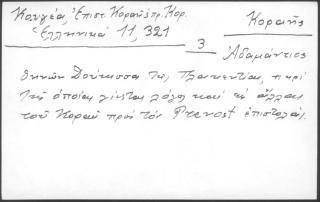 Κουγέα, Ἐπιστ. Κοραῆ πρ. Κορ.
Ἑλληνικά 11, 321
3
Κοραῆς
Ἀδαμάντιος
Δούκισσα τῆς Πλακεντίας, περί
τῆς ὁποίας γίνεται λόγος καί εἰς ἄλλας
τοῦ Κοραῆ πρός τόν Prevost ἐπιστολάς.